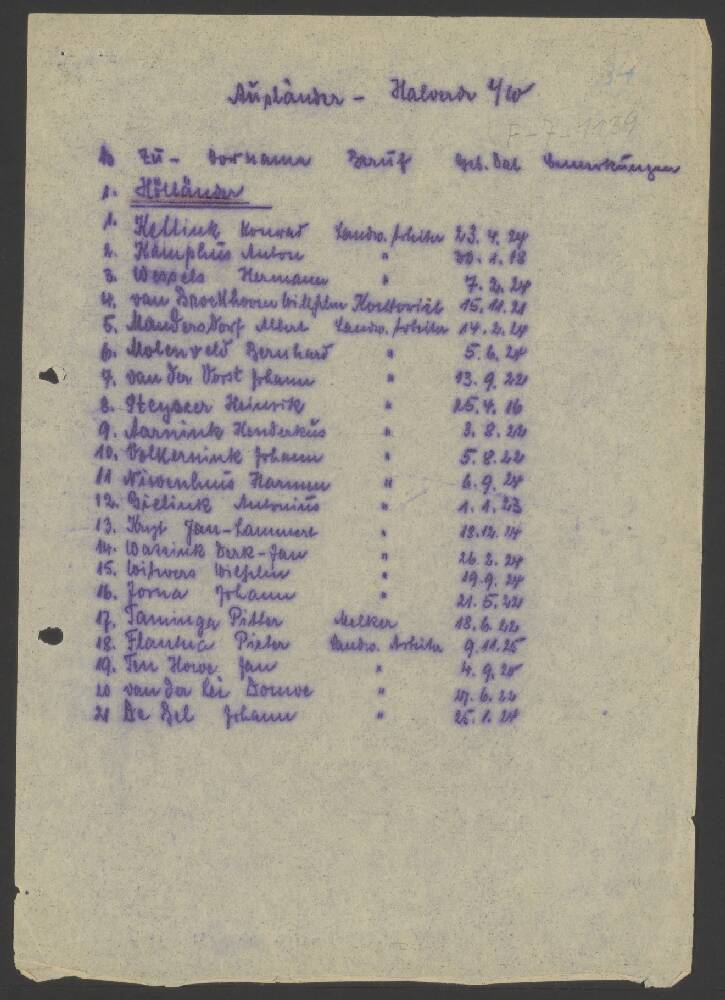 Ausländer - Halverde i/W
34
F-7-1139
No Zu- Vorname Beruf Geb. Dat. Bemerkungen
1. Holländer
1. Keltink Konrad Landw. Arbeiter 23.4.24
2. Kamphus Anton " 30.1.18
3. Wessels Hermann " 7.2.24
4. van Brockhoven Wilhelm 15.11.21
5. Mandersdorf Albert Landw. Arbeiter 14.2.24
6. Molenveld Bernhard " 5.6.24
7. van der Vorst Johann " 13.9.22
8. Steysser Heinrik " 25.4.16
9. Aarnink Henderkus " 3.8.22
10. Volkernink Johann " 5.8.22
11 Niewenhuis Harmen " 6.9.24
12. Bielink Antonius " 1.1.23
13. Kuyt Jan-Lammert " 18.12.24
14. Wassink Derk-Jan " 26.3.24
15. Witvers Wilhelm " 19.9.24
16. Jorna Johann " 21.5.22
17. Taminga Pitter Melker 18.6.22
18. Flantua Pieter Landw. Arbeiter 9.11.25
19. Ten Howe Jan " 4.9.20
20 van der Lei Douwe " 27.6.22
21 De Bel Johann " 25.1.24